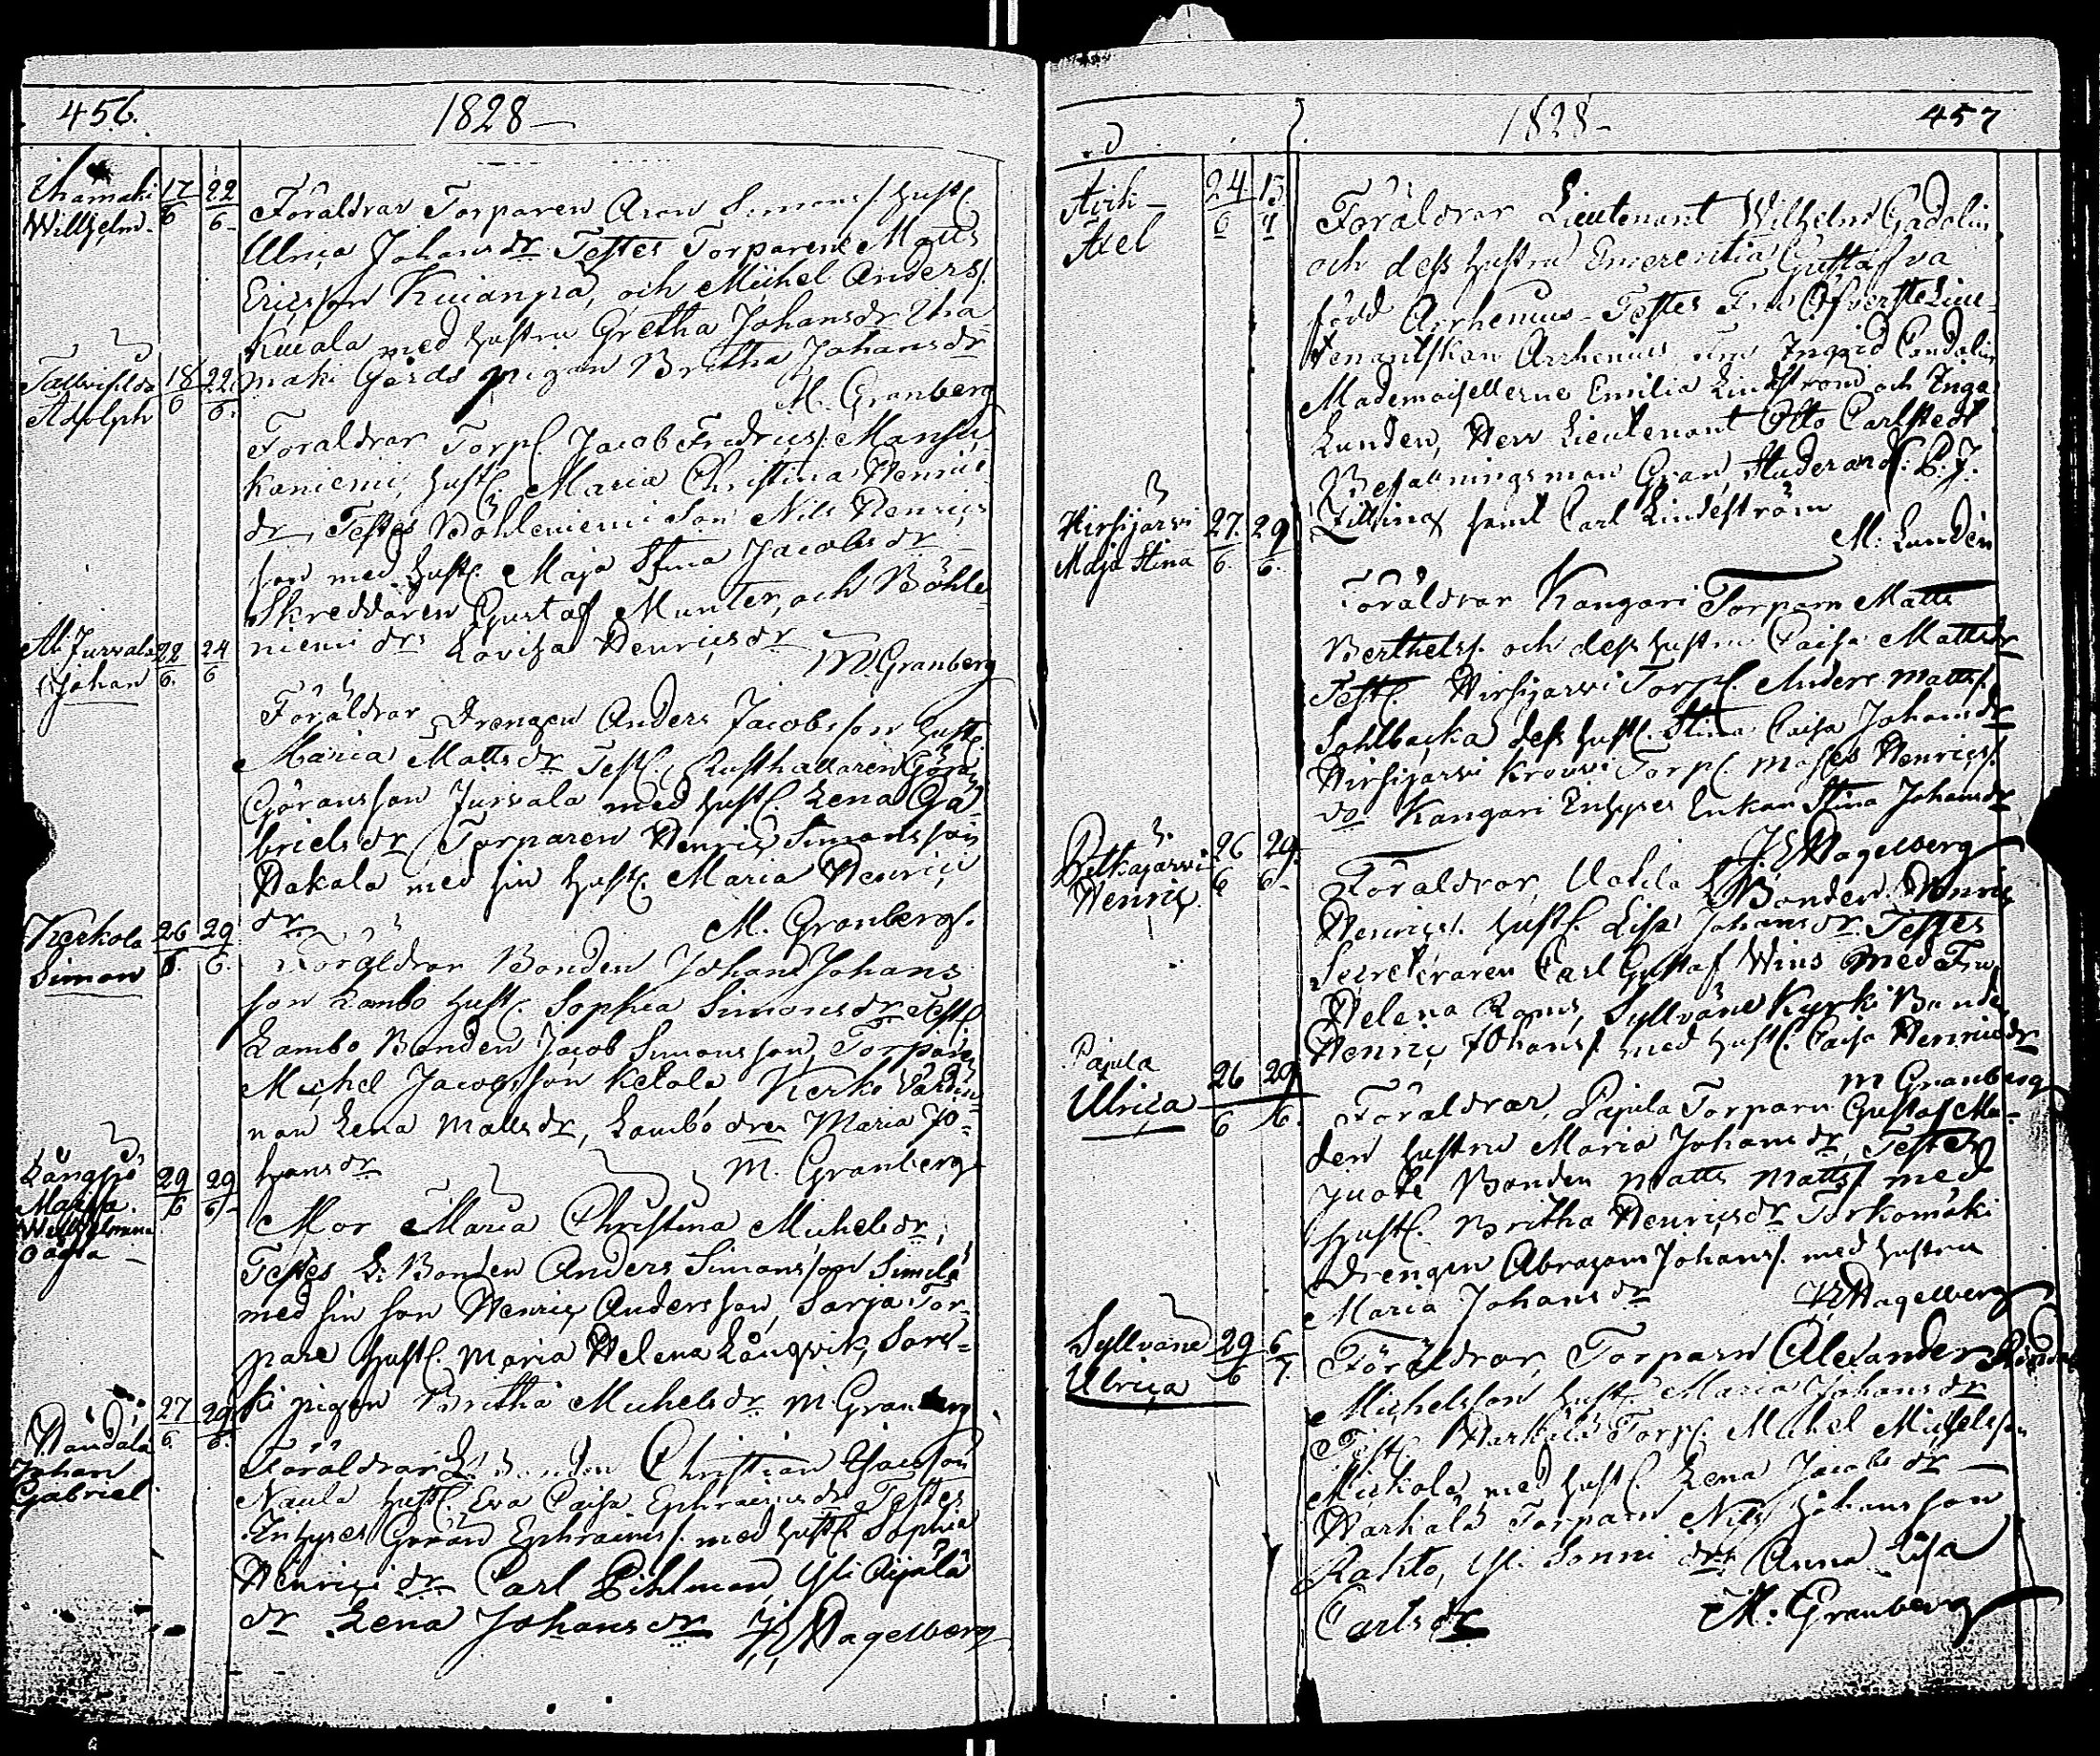 456.
1828
Uhamaki 17/6 22/6
Willhelm.
Föräldrar Torparen Aron Simons. Hust.
Ulrica Johansdr Testes Torparene Matts
Ericsson Kuianpä, och Michel Anders.
Kuiala med hustru Gretha Johansdr Uha
maki Gårds pigan Britha Johansdr
M. Granberg
18/6 22/6
Adolph
Föräldrar Torp. Jacob Fredrics. Mansu
kaniemi, Hust. Maria Christina Henrics
dr, Testes Böhleniemi Son Nils Henrics
son med Hust. Maja Stina Jacobsdr
Skreddaren Gustaf Munter, och Böhle
niemi dr Lovisa Henricsdr
M. Granberg
A. Jurvala 22/6 24/6
Johan
Föräldrar Drengen Anders Jacobsson Hust.
Maria Mattsdr Test. Rusthallaren Göran
Göransson Jurvala med Hust. Lena Ga
brielsdr Torparen Henric Simonsson
Hakala med sin Hust. Maria Henrics
dr
M. Granberg.
Kerkola 26/6 29/6
Simon
Föräldrar Bonden Johan Johans
son Lambo Hust. Sophia Simonsdr Test.
Lambo Bonden Jacob Simonsson, Torparen
Michel Jacobsson Ketola, Kerko
nan Lena Mattsdr, Lambo dr Maria Jo-
hansdr
M. Granberg
Långsjö 29/6 29/6
Maria
Wilhelmina
Oägta
Mor Maria Christina Michelsdr,
Testes L. Bonden Anders Simonsson Simila
med sin son Henric Andersson, Sarja Tor-
pare Hust. Maria Helena Långvik, Sars-
ki pigan Britha Michelsdr M Granberg
Handala 27/6 29/6
Johan
Gabriel
Föräldrar L. Bonden Christian
Naula Hust. Eva Caisa Ephraimsdr Testes
Inhyses Göran Ephraims. med Hust. Sophia
Henricsdr Carl Pihlman, Yli Äijälä
dr Lena Johansdr J E Hagelberg
1828
457
Avik 24/6
Axel
Föräldrar Lieutenant Wilhelm Gadolin
och dess hustru Emerentia Gustafva
född Arrhenius Testes Fru Öfverste Lieu-
tenantskan Arrhenius, Ingrid Gadolin
Mademoisellerne Emilia Lindström och Inga
Lunden, Herr Lieutenant Otto Carlstedt
Befallningsman Gran, Studerand. C. J.
samt Carl Lindeström
M. Lunden
Hirsijarvi 27/6 29/6
Maja Stina
Föräldrar Kangari Torparn Matts
Berthels. och dess hustru Caisa Mattsdr
Test. Hirsijarvi Torp. Anders Matts.
Sohlbacka dess hust. Stina Caisa Johansdr
Hirsijarvi Krouvi Torp. Moses Henrics.
do Kangari Inhyses Enkan Stina Johansdr
J. E Hagelberg
Petkajarvi 26/6 29/6
Henric
Föräldrar, Uotila Bonden Henric
Henrics. Hust. Lisa Johansdr Testes
Secreteraren Carl Gustaf Wins med Fru
Helena Roms, Syllväne Kyrki Bonde
Henric Johans. med hust. Caisa Henricsdr
M Granberg
Pajula 26/6 29/6
Ulrica
Föräldrar, Pajula Torparn Gustaf Mo-
den hustru Maria Johansdr, Testes
Juoke Bonden Matts Matts. med
Hust. Britha Henricsdr Torkomäki
Drengen Abraham Johans. med hustru
Maria Johansdr
J E Hagelberg
Syllväne 29/6 6/7
Ulrica
Föräldrar, Torparn Alexander
Michelsson hust. Maria Johansdr
Test. Harkälä Torp. Mickel Michelsson
Mickola med hust. Lena Jacobsdr
Harkälä Torparn Nils Johansson
Rahto, Yli Sonni dr Anna Lisa
Carlsdr
M. Granberg